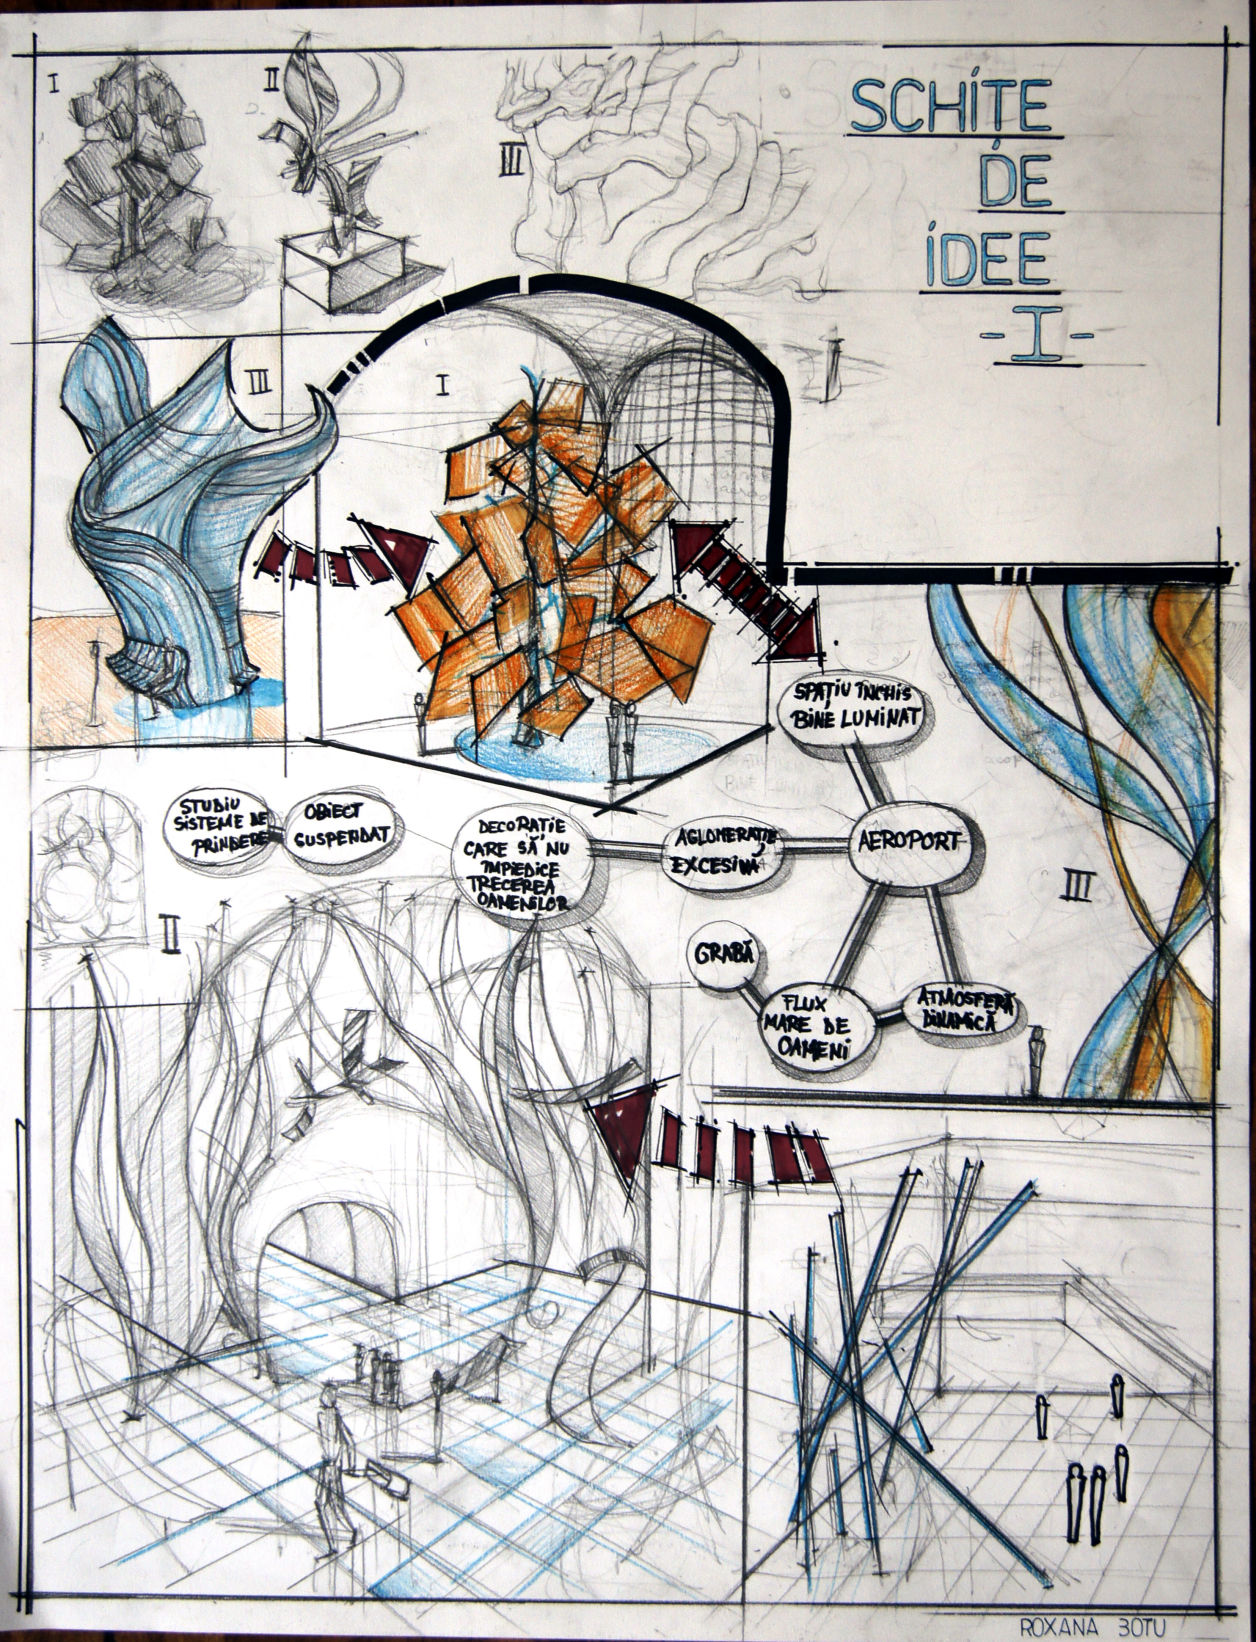 I
II
III
SCHITE
DE
IDEE
-I-
III
I
SPAȚIU ÎNCHIS
BINE LUMINAT
STUDIU
SISTEME DE
PRINDERE
OBIECT
SUSPENDAT
DECORATIE
CARE SĂ NU
IMPIEDICE
TRECEREA
OAMENILOR
AGLOMERAȚIE
EXCESIVĂ
AEROPORT
III
II
GRABĂ
FLUX
MARE DE
OAMENI
ATMOSFERĂ
DINAMICĂ
ROXANA BOTU